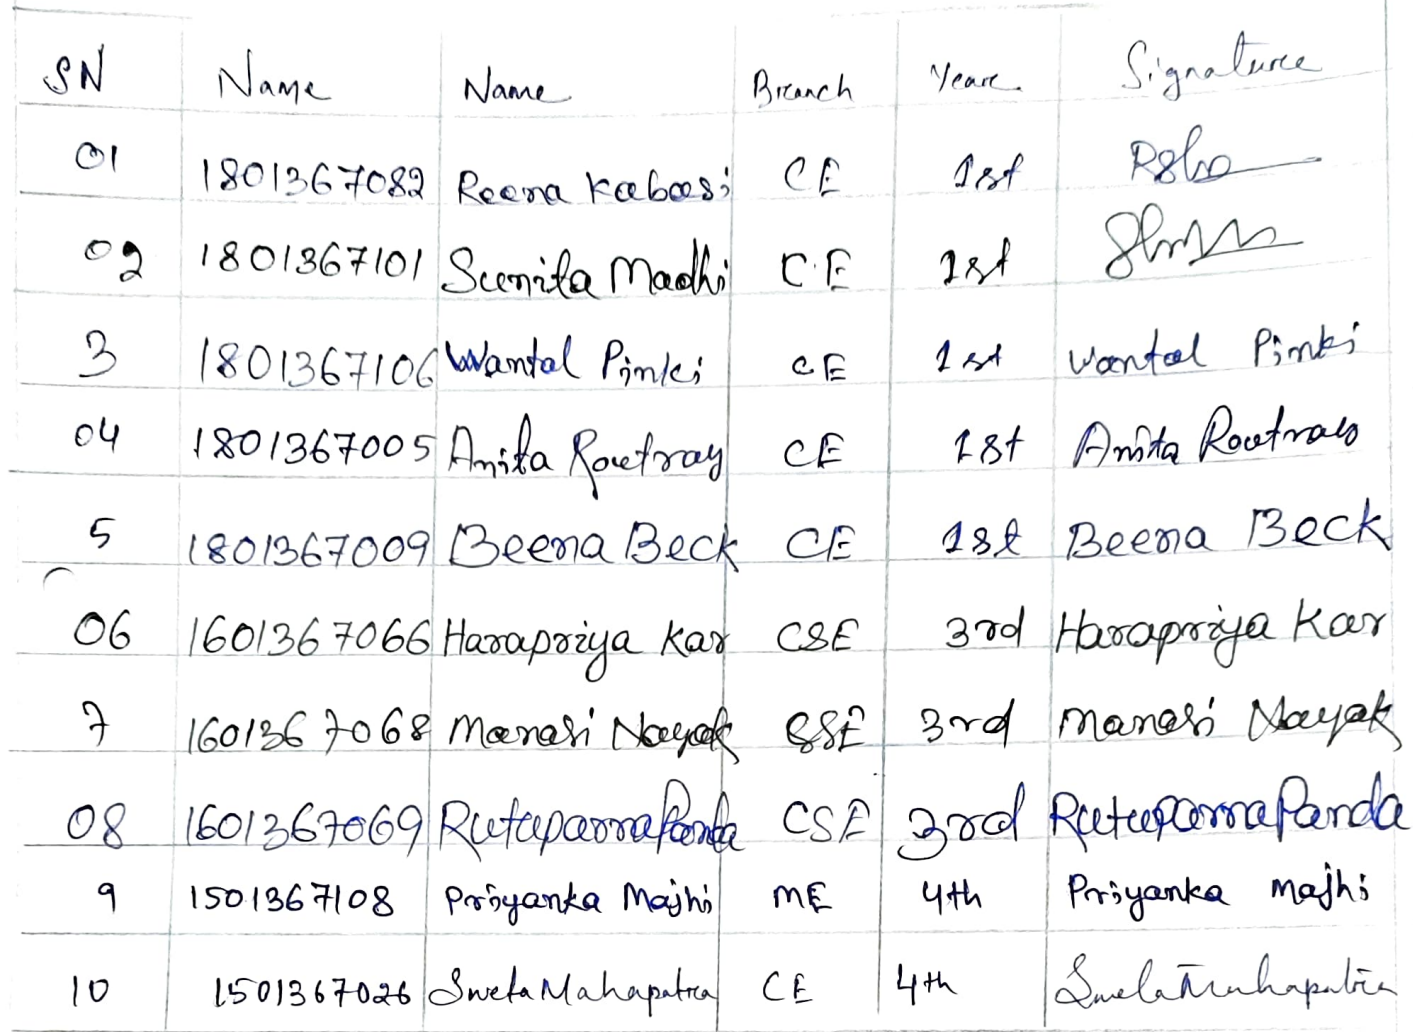 SN Name Name Branch Year Signature
01 1801367082 Reena Kabasi CE 1st
02 1801367101 Sunita Madhi C.E 1st
3 1801367106 Wantal Pinki CE 1st Wantal Pinki
04 1801367005 Anita Routray CE 1st Anita Routray
5 1801367009 Beena Beck CE 1st Beena Beck
06 1601367066 Harapriya Kar CSE 3rd Harapriya Kar
7 1601367068 Manasi Nayak CSE 3rd Manasi Nayak
08 1601367069 Rutuparna Panda CSE 3rd Rutuparna Panda
9 1501367108 Priyanka Majhi ME 4th Priyanka Majhi
10 1501367026 Sweta Mahapatra CE 4th Sweta Mahapatra